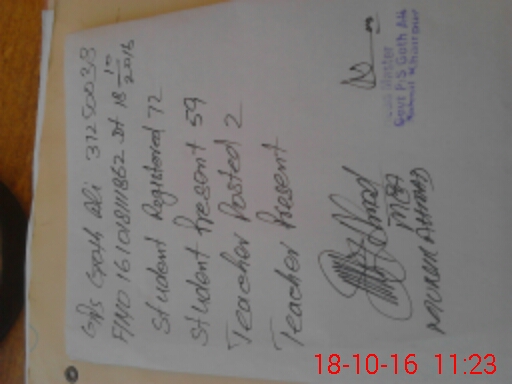 GPS Goth Ali
F/NO 161018111862 Dt 18
10
2016
Student Registered 72
Student Present 59
Teacher Posted 2
Teacher Present
MEA
Master
Govt P/S Goth Ali
18-10-16 11:23